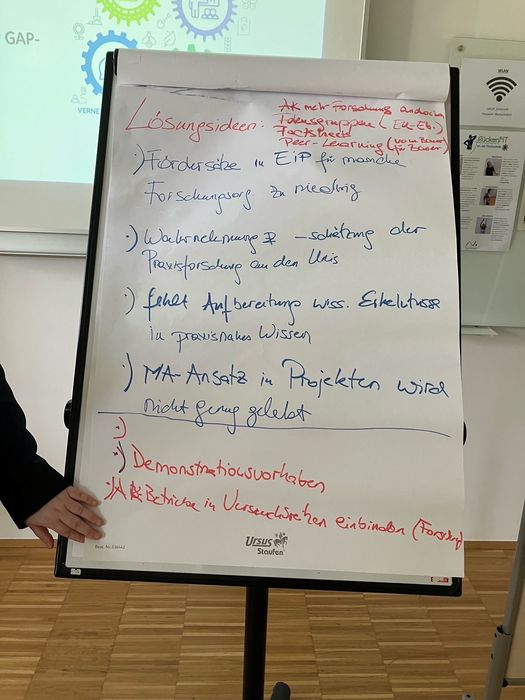 GAP-
VERNE
Lösungsideen:
AK mehr Forschung andocken
Fokusgruppen (EU-Eb.)
Factsheet
Peer-Learning (vom Bauer für Bauer)
·) Fördersätze in EIP für manche
Forschungsorg. zu niedrig
·) Wahrnehmung & -schätzung der
Praxisforschung an den Unis
·) fehlt Aufbereitung wiss. Erkenntnisse
in praxisnahes Wissen
·) MA-Ansatz in Projekten wird
nicht genug gelebt
·)
·) Demonstrationsvorhaben
·) Betriebe in Versuchsreihen einbinden (Forschung)
Best. Nr. 036442
Ursus
Staufen
WLAN
RückenFIT